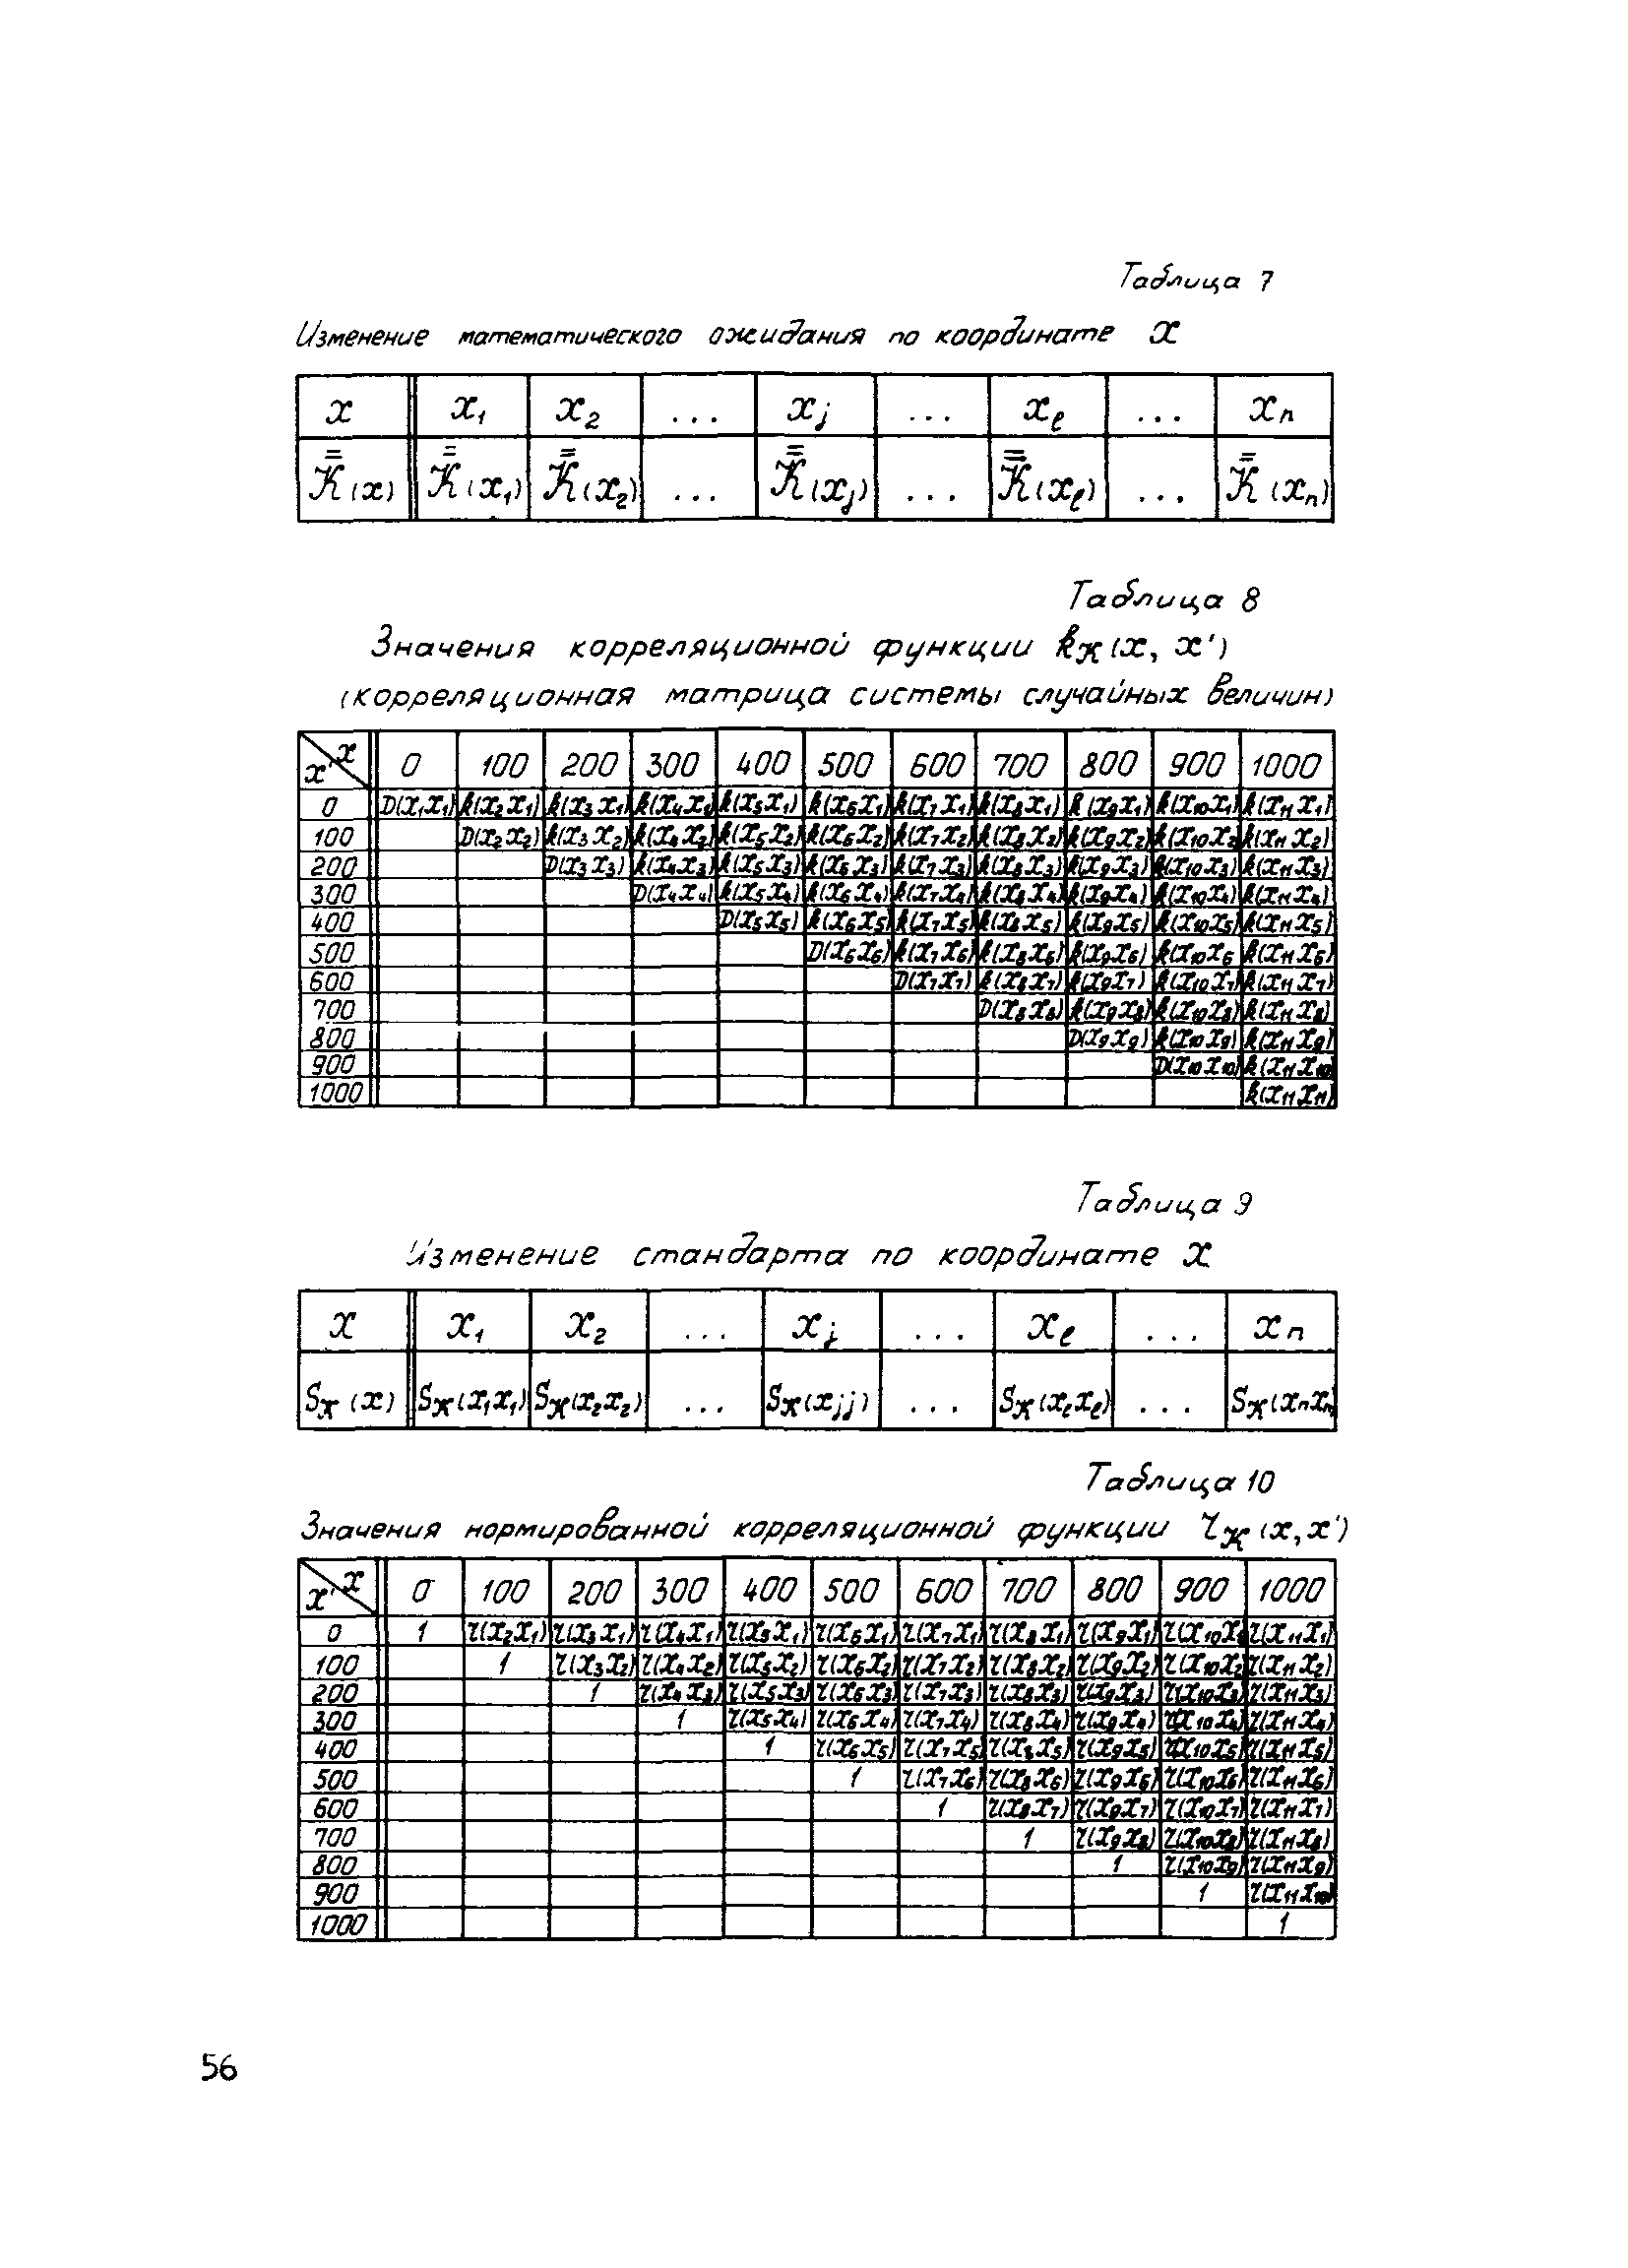 Таблица 7
Изменение математического ожидания по координате x
x x₁ x₂ ... xⱼ ... xₗ ... xₙ
K̿(x) K̿(x₁) K̿(x₂) ... K̿(xⱼ) ... K̿(xₗ) ... K̿(xₙ)
Таблица 8
Значения корреляционной функции k_K(x, x')
(корреляционная матрица системы случайных величин)
x' x 0 100 200 300 400 500 600 700 800 900 1000
0 D(x₁x₁) k(x₂x₁) k(x₃x₁) k(x₄x₁) k(x₅x₁) k(x₆x₁) k(x₇x₁) k(x₈x₁) k(x₉x₁) k(x₁₀x₁) k(x₁₁x₁)
100 D(x₂x₂) k(x₃x₂) k(x₄x₂) k(x₅x₂) k(x₆x₂) k(x₇x₂) k(x₈x₂) k(x₉x₂) k(x₁₀x₂ k(x₁₁x₂)
200 D(x₃x₃) k(x₄x₃) k(x₅x₃) k(x₆x₃) k(x₇x₃) k(x₈x₃) k(x₉x₃) k(x₁₀x₃) k(x₁₁x₃)
300 D(x₄x₄) k(x₅x₄) k(x₆x₄) k(x₇x₄) k(x₈x₄) k(x₉x₄) k(x₁₀x₄) k(x₁₁x₄)
400 D(x₅x₅) k(x₆x₅) k(x₇x₅) k(x₈x₅) k(x₉x₅) k(x₁₀x₅) k(x₁₁x₅)
500 D(x₆x₆) k(x₇x₆) k(x₈x₆) k(x₉x₆) k(x₁₀x₆ k(x₁₁x₆)
600 D(x₇x₇) k(x₈x₇) k(x₉x₇) k(x₁₀x₇) k(x₁₁x₇)
700 D(x₈x₈) k(x₉x₈) k(x₁₀x₈) k(x₁₁x₈)
800 D(x₉x₉) k(x₁₀x₉) k(x₁₁x₉)
900 D(x₁₀x₁₀) k(x₁₁x₁₀)
1000 k(x₁₁x₁₁)
Таблица 9
Изменение стандарта по координате x
x x₁ x₂ ... xⱼ ... xₗ ... xₙ
S_K(x) S_K(x₁x₁) S_K(x₂x₂) ... S_K(xⱼⱼ) ... S_K(xₗxₗ) ... S_K(xₙxₙ)
Таблица 10
Значения нормированной корреляционной функции r_K(x, x')
x' x 0 100 200 300 400 500 600 700 800 900 1000
0 1 r(x₂x₁) r(x₃x₁) r(x₄x₁) r(x₅x₁) r(x₆x₁) r(x₇x₁) r(x₈x₁) r(x₉x₁) r(x₁₀x₁ r(x₁₁x₁)
100 1 r(x₃x₂) r(x₄x₂) r(x₅x₂) r(x₆x₂) r(x₇x₂) r(x₈x₂) r(x₉x₂) r(x₁₀x₂ r(x₁₁x₂)
200 1 r(x₄x₃) r(x₅x₃) r(x₆x₃) r(x₇x₃) r(x₈x₃) r(x₉x₃) r(x₁₀x₃) r(x₁₁x₃)
300 1 r(x₅x₄) r(x₆x₄) r(x₇x₄) r(x₈x₄) r(x₉x₄) r(x₁₀x₄) r(x₁₁x₄)
400 1 r(x₆x₅) r(x₇x₅) r(x₈x₅) r(x₉x₅) r(x₁₀x₅) r(x₁₁x₅)
500 1 r(x₇x₆) r(x₈x₆) r(x₉x₆) r(x₁₀x₆) r(x₁₁x₆)
600 1 r(x₈x₇) r(x₉x₇) r(x₁₀x₇) r(x₁₁x₇)
700 1 r(x₉x₈) r(x₁₀x₈) r(x₁₁x₈)
800 1 r(x₁₀x₉) r(x₁₁x₉)
900 1 r(x₁₁x₁₀)
1000 1
56